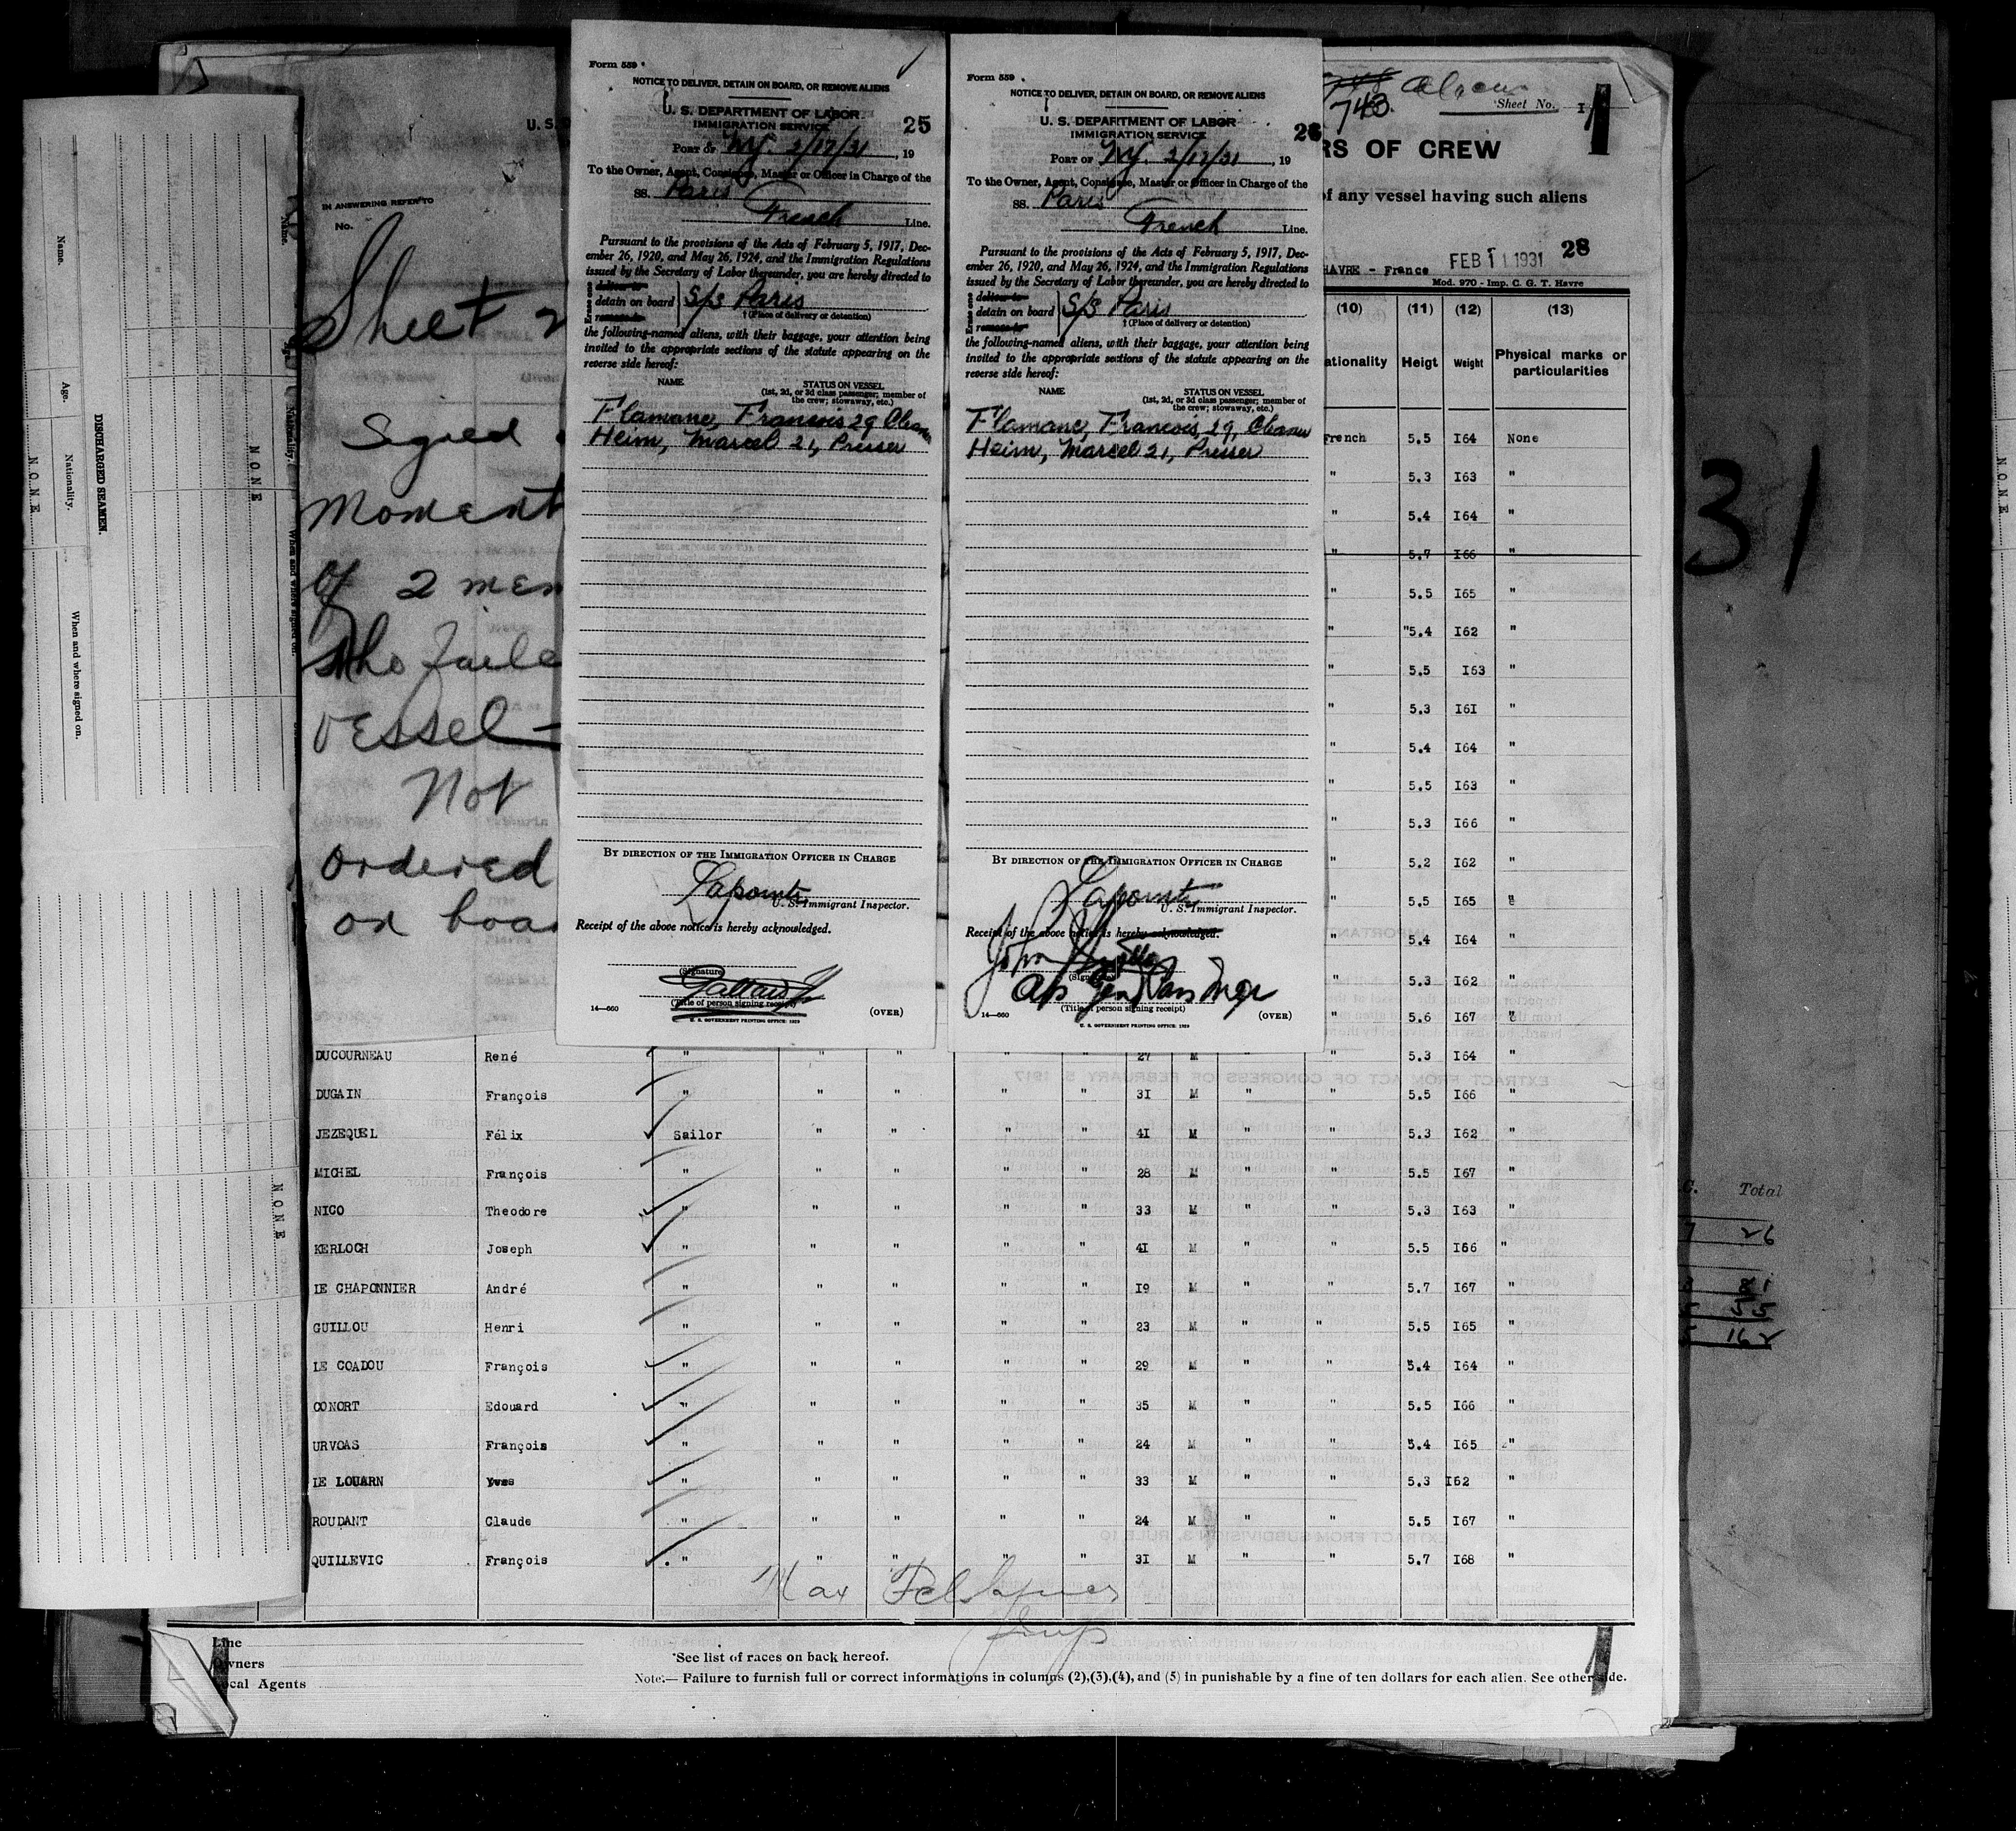 Name.
Age.
Nationality.
When and where signed on.
NONE
DISCHARGED SEAMEN.
Name.
Nationality.
When and where signed on.
NONE
NONE
U. S.
IN ANSWERING REFER TO
No.
Sheet 2
Signed
Moment
of 2 men
who faile
vessel —
Not
ordered
on boa
Form 559
NOTICE TO DELIVER, DETAIN ON BOARD, OR REMOVE ALIENS
U. S. DEPARTMENT OF LABOR
IMMIGRATION SERVICE
25
PORT OF NY. 2/17/31, 19
To the Owner, Agent, Consignee, Master or Officer in Charge of the
SS. Paris
French Line.
Pursuant to the provisions of the Acts of February 5, 1917, Dec-
ember 26, 1920, and May 26, 1924, and the Immigration Regulations
issued by the Secretary of Labor thereunder, you are hereby directed to
deliver to
detain on board S/S Paris
remove to
† (Place of delivery or detention)
the following-named aliens, with their baggage, your attention being
invited to the appropriate sections of the statute appearing on the
reverse side hereof:
NAME STATUS ON VESSEL
(1st, 2d, or 3d class passenger; member of
the crew; stowaway, etc.)
Flamanc, Francois 29 Cleaner
Heim, Marcel 21, Presser
BY DIRECTION OF THE IMMIGRATION OFFICER IN CHARGE
Lapointe
U. S. Immigrant Inspector.
Receipt of the above notice is hereby acknowledged.
(Signature)
(Title of person signing receipt)
14—660 (OVER)
U. S. GOVERNMENT PRINTING OFFICE: 1929
Form 559
NOTICE TO DELIVER, DETAIN ON BOARD, OR REMOVE ALIENS
U. S. DEPARTMENT OF LABOR
IMMIGRATION SERVICE
26
PORT OF NY. 2/17/31, 19
To the Owner, Agent, Consignee, Master or Officer in Charge of the
SS. Paris
French Line.
Pursuant to the provisions of the Acts of February 5, 1917, Dec-
ember 26, 1920, and May 26, 1924, and the Immigration Regulations
issued by the Secretary of Labor thereunder, you are hereby directed to
deliver to
detain on board S/S Paris
remove to
† (Place of delivery or detention)
the following-named aliens, with their baggage, your attention being
invited to the appropriate sections of the statute appearing on the
reverse side hereof:
NAME STATUS ON VESSEL
(1st, 2d, or 3d class passenger; member of
the crew; stowaway, etc.)
Flamanc, Francois, 29, Cleaner
Heim, Marcel 21, Presser
BY DIRECTION OF THE IMMIGRATION OFFICER IN CHARGE
Lapointe
U. S. Immigrant Inspector.
Receipt of the above notice is hereby acknowledged.
John
(Signature)
(Title of person signing receipt)
14—660 (OVER)
U. S. GOVERNMENT PRINTING OFFICE: 1929
743. Aliens
Sheet No. I
RS OF CREW
of any vessel having such aliens
HAVRE - France FEB 11 1931 28
Mod. 970 - Imp. C. G. T. Havre
(10) (11) (12) (13)
ationality Heigt Weight Physical marks or
particularities
French 5.5 I64 None
" 5.3 I63 "
" 5.4 I64 "
" 5.7 I66 "
" 5.5 I65 "
" "5.4 I62 "
" 5.5 I63 "
" 5.3 I6I "
" 5.4 I64 "
" 5.5 I63 "
" 5.3 I66 "
" 5.2 I62 "
" 5.5 I65 "
" 5.4 I64 "
" 5.3 I62 "
" 5.6 I67 "
DUCOURNEAU René " " " " " 27 M " " 5.3 I64 "
DUGAIN François " " " " " 3I M " " 5.5 I66 "
JEZEQUEL Félix Sailor " " " " 4I M " " 5.3 I62 "
MICHEL François " " " " " 28 M " " 5.5 I67 "
NICO Theodore " " " " " 33 M " " 5.3 I63 "
KERLOCH Joseph " " " " " 4I M " " 5.5 I66 "
LE CHAPONNIER André " " " " " I9 M " " 5.7 I67 "
GUILLOU Henri " " " " " 23 M " " 5.5 I65 "
LE COADOU François " " " " " 29 M " " 5.4 I64 "
CONORT Edouard " " " " " 35 M " " 5.5 I66 "
URVOAS François " " " " " 24 M " " 5.4 I65 "
LE LOUARN Yves " " " " " 33 M " " 5.3 I62 "
ROUDANT Claude " " " " " 24 M " " 5.5 I67 "
QUILLEVIC François " " " " " 3I M " " 5.7 I68 "
Max
Line
Owners
ocal Agents
*See list of races on back hereof.
Note.— Failure to furnish full or correct informations in columns (2),(3),(4), and (5) in punishable by a fine of ten dollars for each alien. See other side.
31
C. Total
7 26
162
NONE